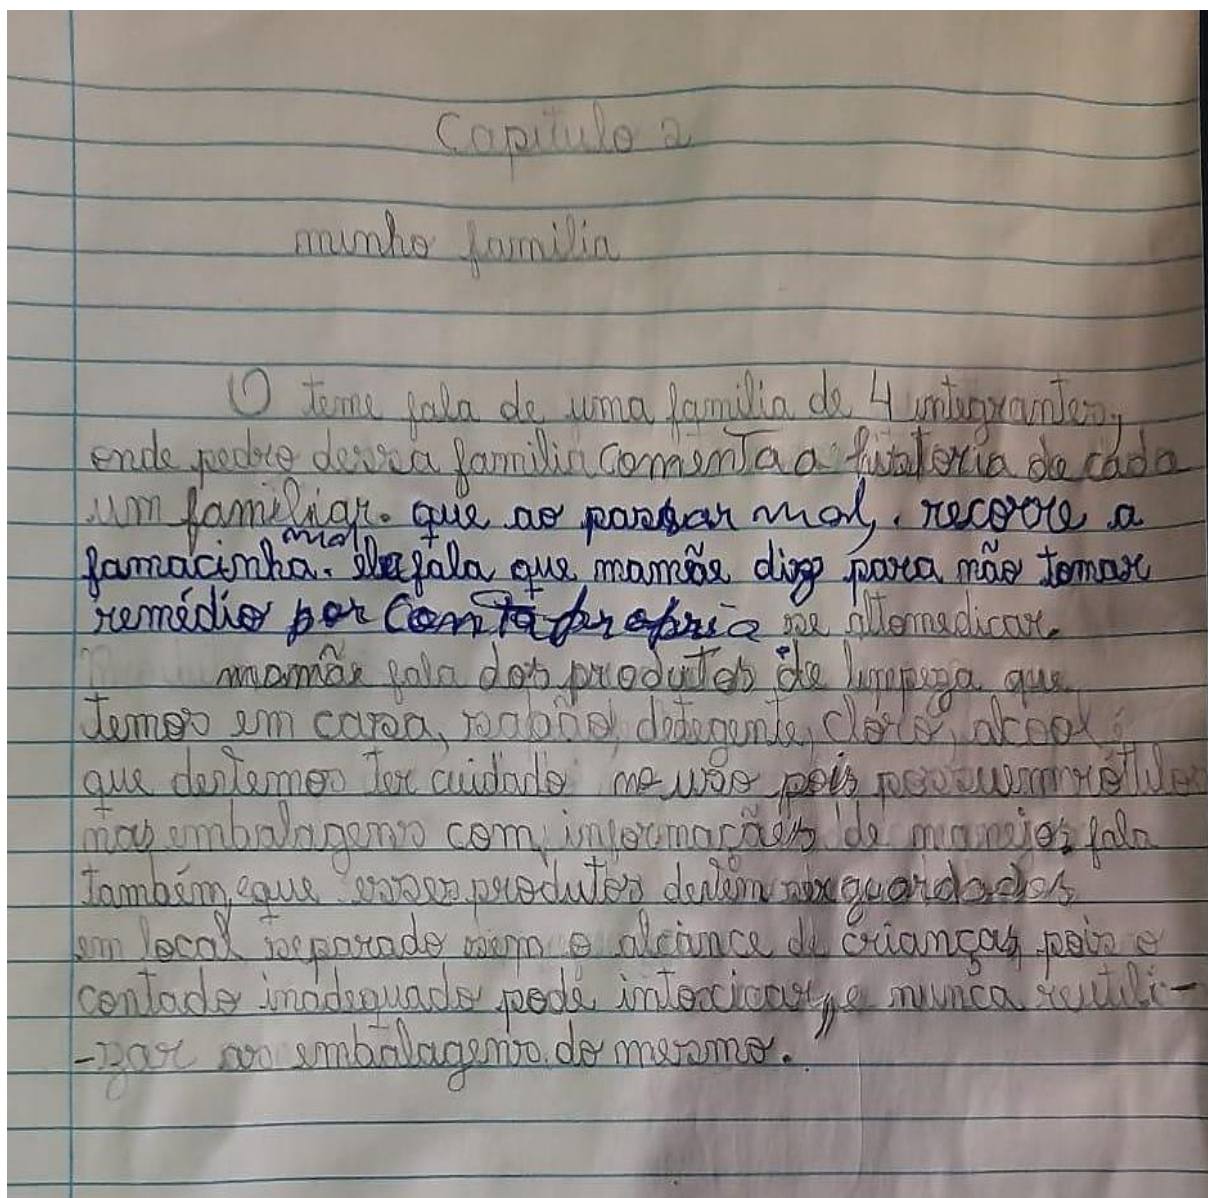 Capitulo 2
minho familia
O teme fala de uma familia de 4 integrantes,
onde pedro dessa familia comenta a história de cada
um familiar. que ao passar mal, recorre a
mas
famacinha. ele fala que mamãe diz para não tomar
remédio por conta propria se altomedicar.
mamãe fala dos produtos de limpeza que
temos em casa, sabão, detegente, cloro, alcool
que devemos ter cuidado no uso pois possuem rótulos
nas embalagens com informações de manejos fala
também, que esses produtos devem ser guardados
em local separado sem o alcance de crianças, pois o
contado inadequado pode intoxicar, e nunca reutili-
-zar as embalagens do mesmo.